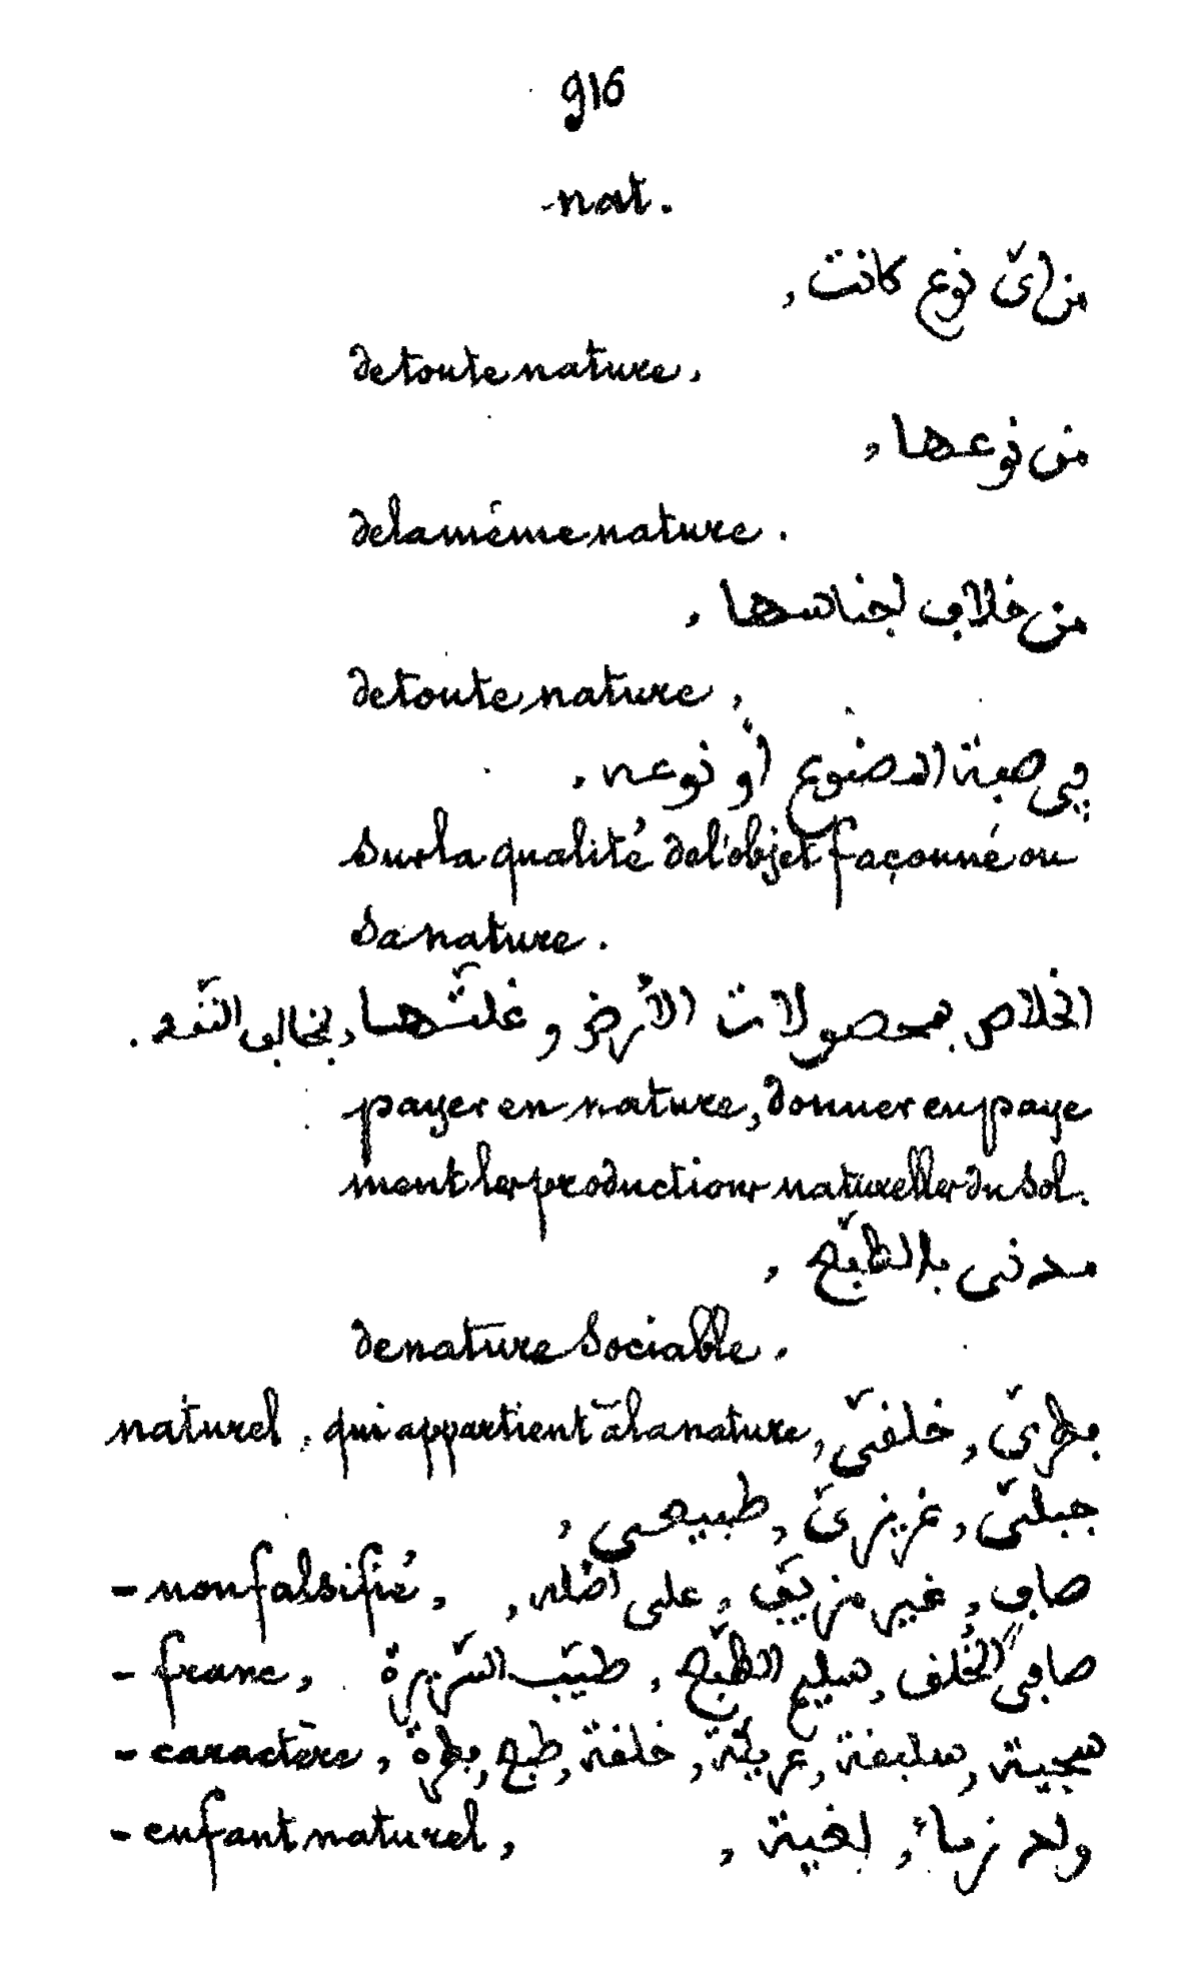 916
nat.
من أىّ نوع كانت,
de toute nature,
من نوعها,
de la même nature.
من خلاف اجناسها,
de toute nature,
في صفة المصنوع أو نوعه.
sur la qualité de l'objet façonné ou
sa nature.
الخلاص بمحصولات الأرض و غلتّها,
payer en nature, donner en paye
ment les productions naturelles du sol.
مدنى بالطّبع,
de nature sociable.
naturel, qui appartient à la nature, فطرىّ, خلقىّ,
جبلىّ, غريزىّ, طبيعى,
- non falsifié, صاف, غير مزيّف, على أصله,
- franc, صافى الخُلف, سليم الطّبع, طيّب السّريرة
- caractère, سجيّة, سليقة, خلقة, طبع, فطرة
- enfant naturel, ولد زناء, لغية,